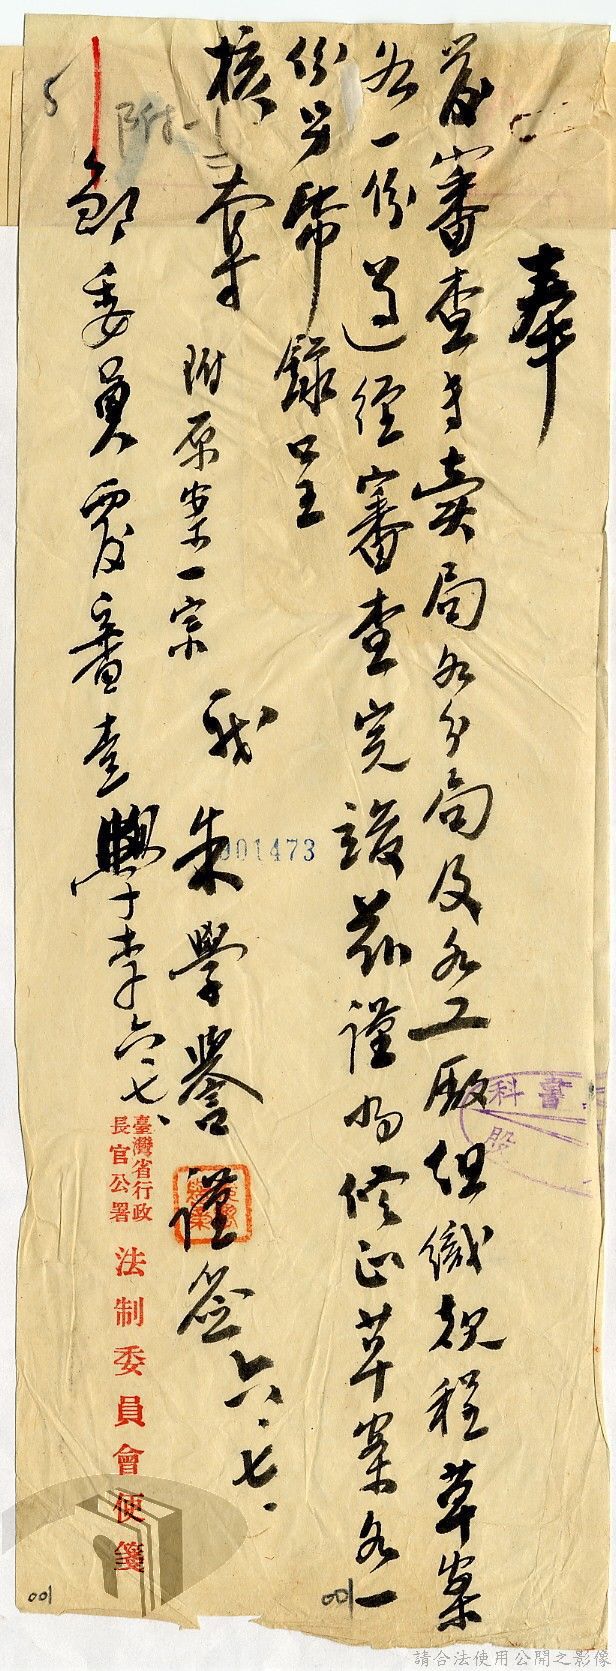 奉
發審查專賣局各分局及各工廠組織規程草案
各一份遵經審查完竣茲謹將修正草案各一
份另紙錄呈
核奪
附原案一宗
職朱學譽謹簽 六.七.
邵委員覆審查
六.七.
附一
5
001473
書科
股
臺灣省行政
長官公署
法制委員會便箋
001
001
請合法使用公開之影像